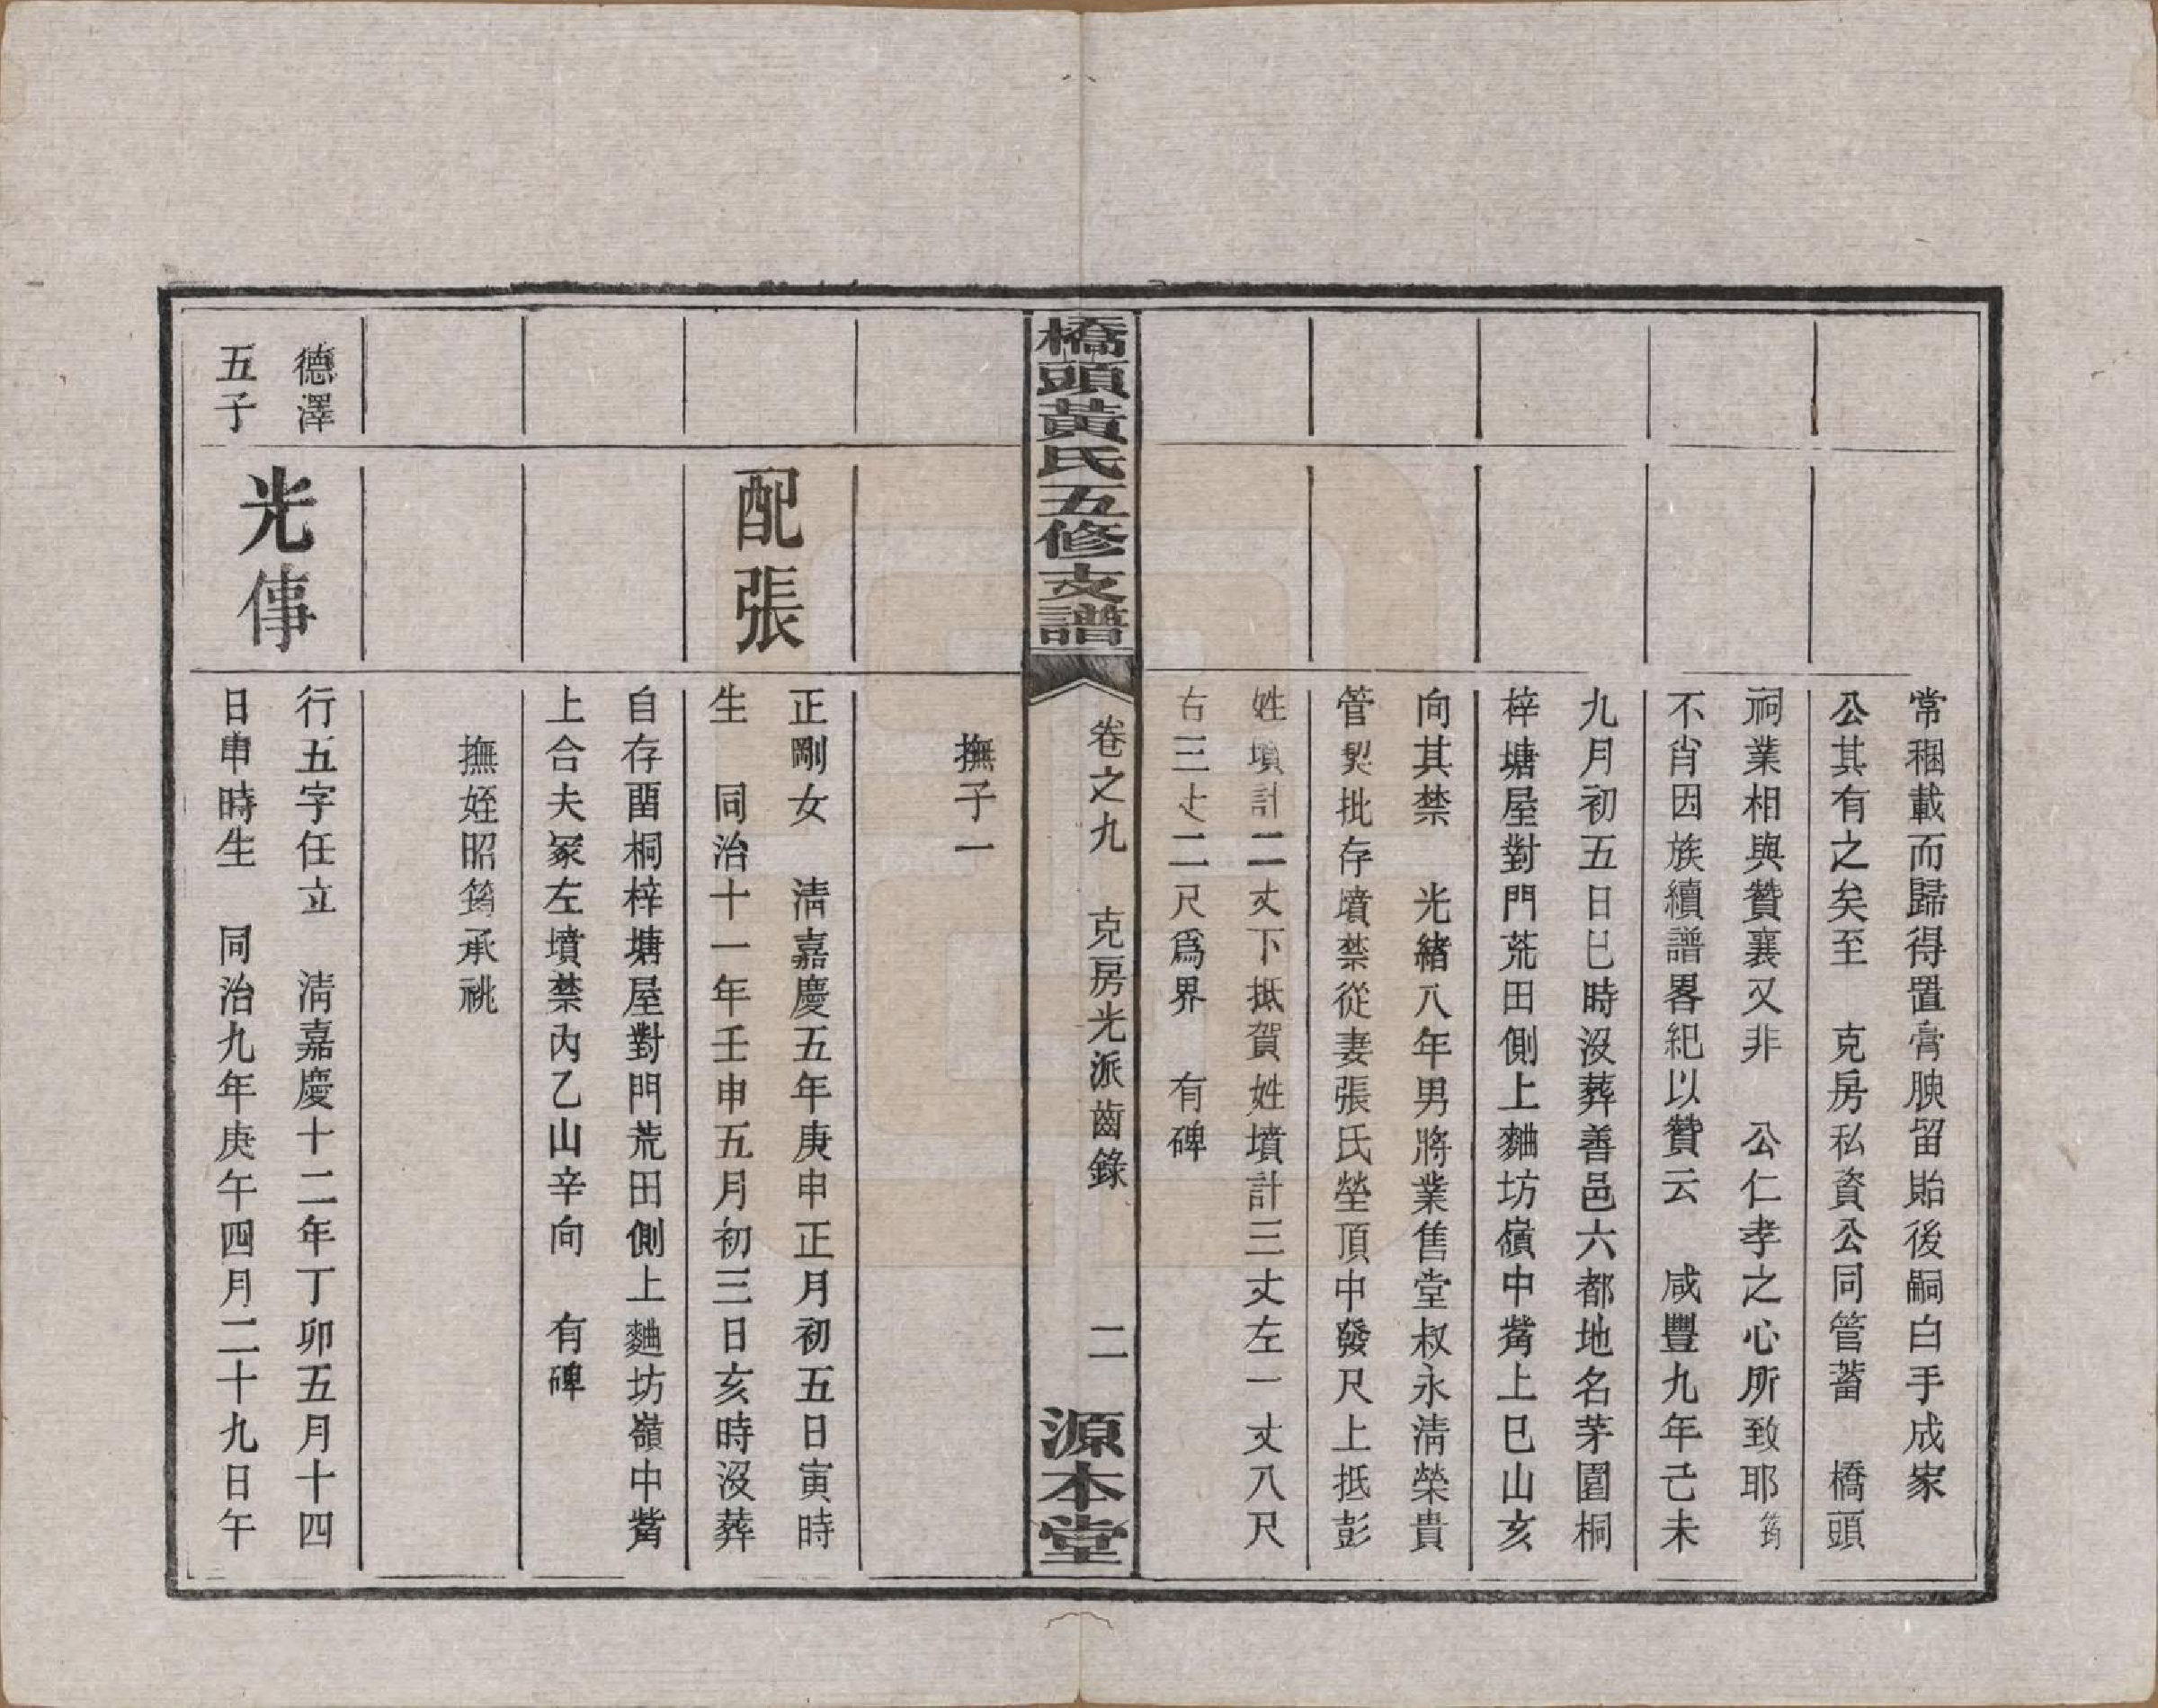 常稛載而歸得置膏腴留貽後嗣白手成家
公其有之矣至　克房私資公同管蓄　橋頭
祠業相與贊襄又非　公仁孝之心所致耶筠
不肖因族續譜畧紀以贊云　咸豐九年己未
九月初五日巳時沒葬善邑六都地名茅園桐
梓塘屋對門荒田側上麯坊嶺中觜上巳山亥
向其禁　光緒八年男將業售堂叔永清榮貴
管契批存墳禁從妻張氏塋頂中發尺上抵彭
姓墳計二丈下抵賀姓墳計三丈左一丈八尺
右三丈二尺爲界　有碑
橋頭黃氏五修支譜
卷之九　克房光派齒錄　二
源本堂
撫子一
配張
正剛女　清嘉慶五年庚申正月初五日寅時
生　同治十一年壬申五月初三日亥時沒葬
自存畱桐梓塘屋對門荒田側上麯坊嶺中觜
上合夫冢左墳禁內乙山辛向　有碑
撫姪昭筠承祧
德澤
五子
光傳
行五字任立　清嘉慶十二年丁卯五月十四
日申時生　同治九年庚午四月二十九日午